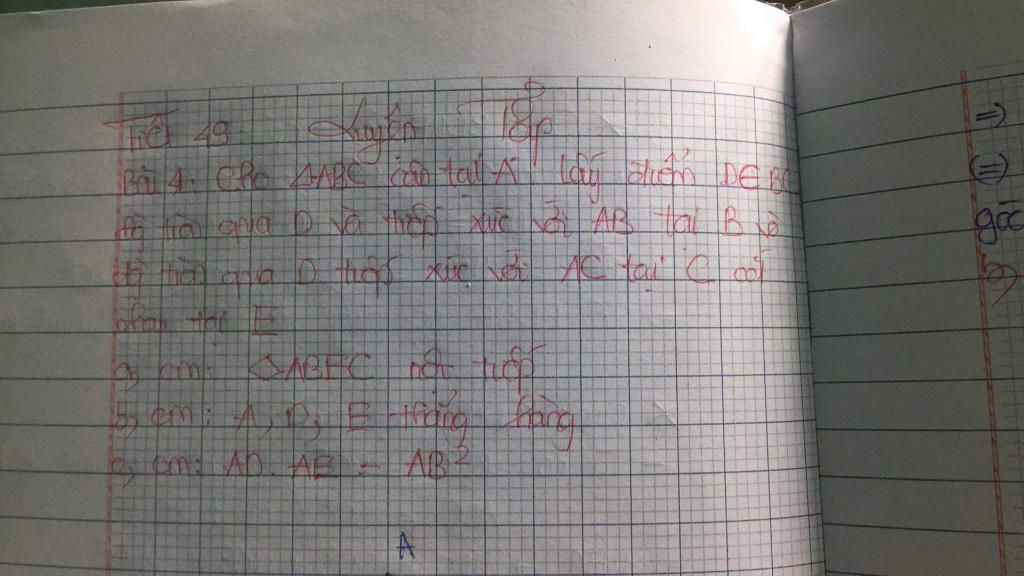 Tiết 49. Luyện Tập
Bài 4. Cho △ABC cân tại A lấy điểm D∈BC
đg tròn qua D và tiếp xúc với AB tại B và
đg tròn qua D tiếp xúc với AC tại C cắt
nhau tại E
a, cm: ◇ABEC nội tiếp
b, cm: A, D, E thẳng hàng
c, cm: AD. AE = AB²
A
⇒
(⇒)
góc
b)